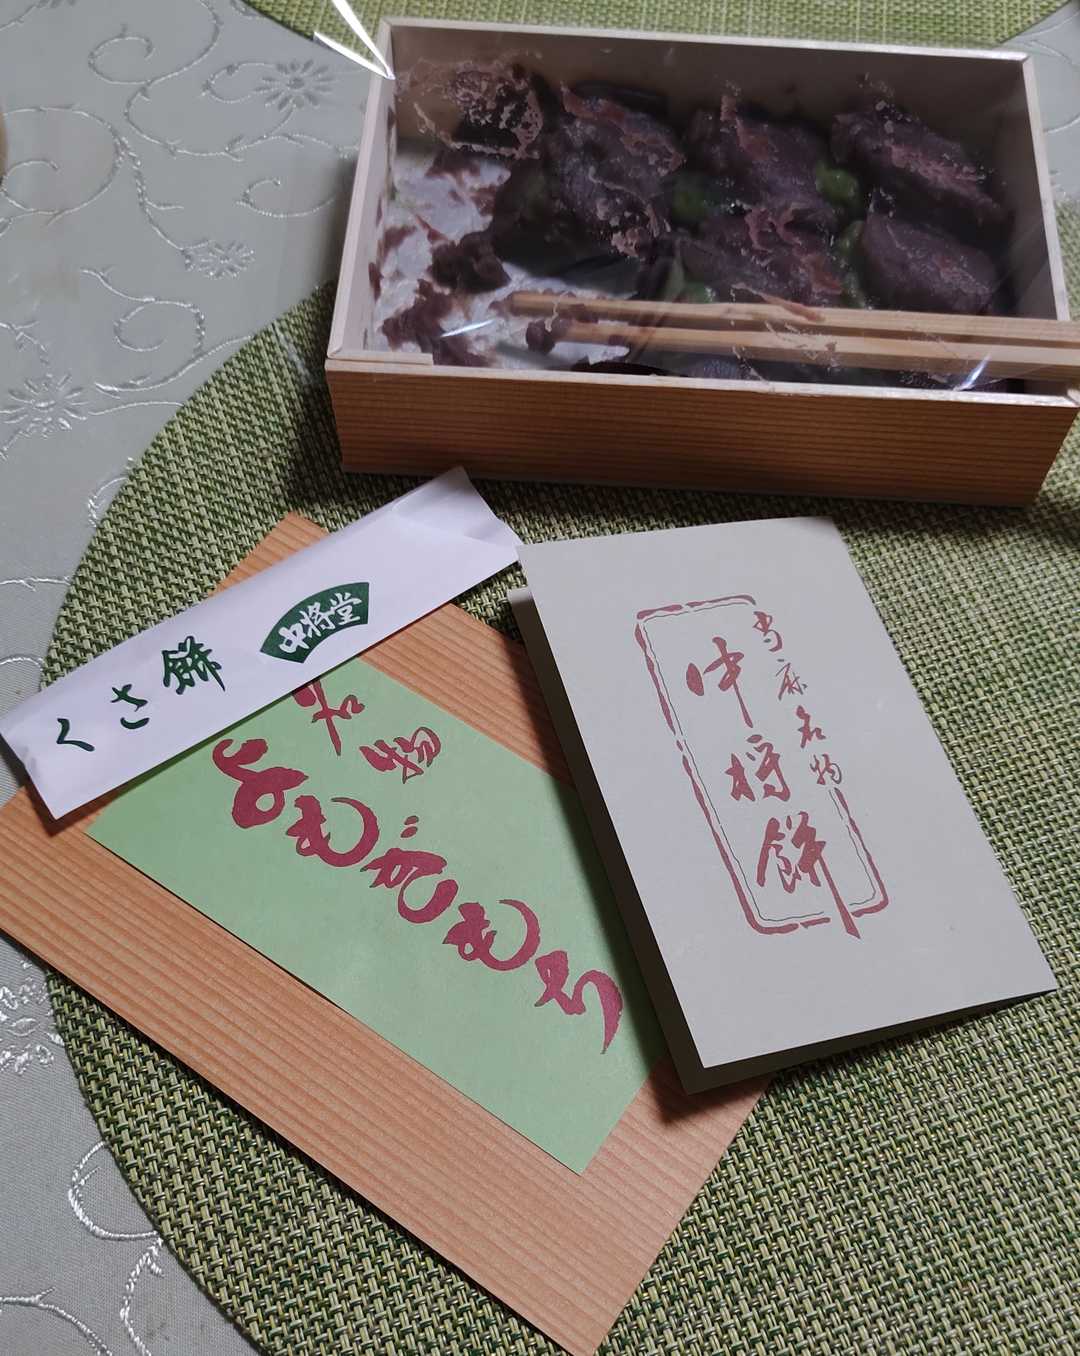 くさ餅
中将堂
名物
よもぎもち
当麻名物
中将餅